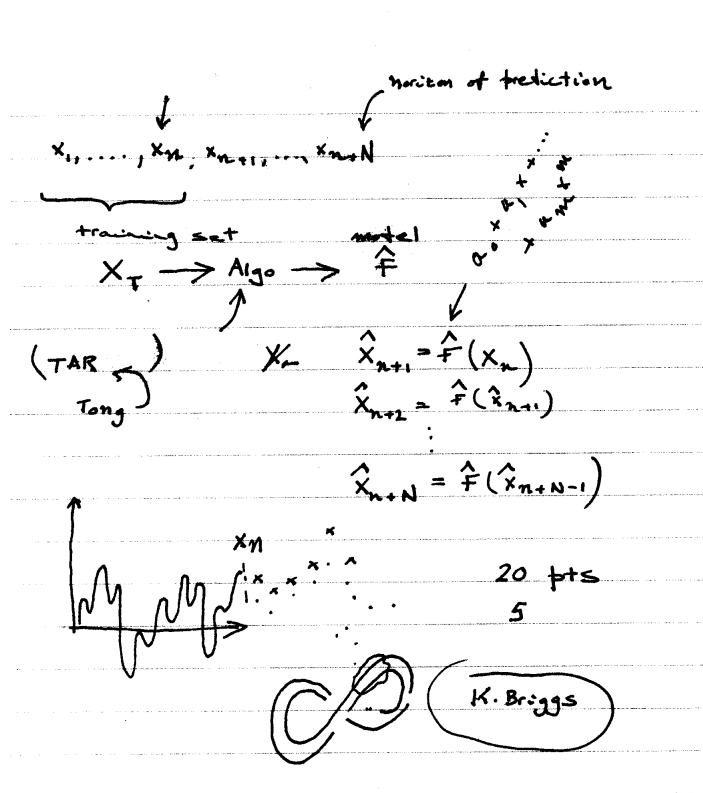 horizon of prediction
x₁, ....., xₙ, xₙ₊₁, ...., xₙ₊N
training set
model
X_T → Algo → F̂
(TAR)
Tong
X̂ₙ₊₁ = F̂(Xₙ)
X̂ₙ₊₂ = F̂(x̂ₙ₊₁)
⋮
X̂ₙ₊N = F̂(x̂ₙ₊N₋₁)
xn
20 pts
5
K. Briggs